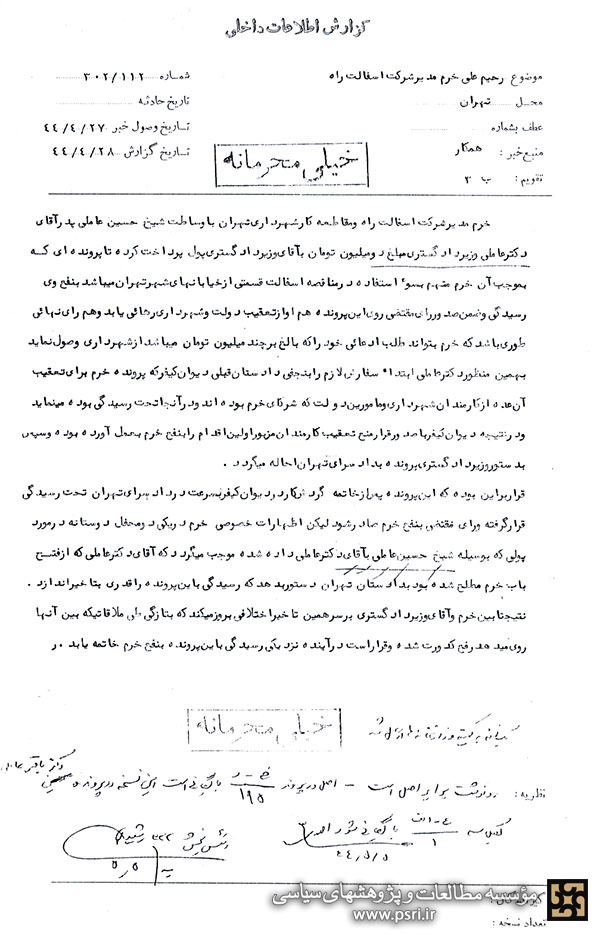 گزارش اطلاعات داخلی
موضوع رحیم علی خرم مدیرشرکت اسفالت راه
شماره ۳۰۲/۱۱۲
محل تهران
تاریخ حادثه
عطف بشماره
تاریخ وصول خبر ۴۴/۴/۲۷
منبع خبر : همکار
تاریخ گزارش ۴۴/۴/۲۸
تقویم : ب ۳
خیلی محرمانه
خرم مدیرشرکت اسفالت راه ومقاطعه کارشهرداری تهران باوساطت شیخ حسین عاملی پدرآقای
دکترعاملی وزیردادگستری مبلغ دومیلیون تومان بآقای وزیردادگستری پول پرداخت کرده تاپرونده ای که
بموجب آن خرم متهم بسوء استفاده درمناقصه اسفالت قسمتی ازخیابانهای شهرتهران میباشد بنفع وی
رسیدگی وضمن صدوررای مقتضی روی این پرونده هم اوازتعقیب دولت وشهرداری رهائی یابد وهم رای نهائی
طوری باشد که خرم بتواند طلب ادعائی خودراکه بالغ برچند میلیون تومان میباشد ازشهرداری وصول نماید
بهمین منظوردکترعاملی ابتداء سفارش لازم رابنجفی دادستان قبلی دیوان کیفرکه پرونده خرم برای تعقیب
آن عده ازکارمندان شهرداری ومامورین دولت که شرکای خرم بوده اند ودرآنجاتحت رسیدگی بوده مینماید
ودرنتیجه دیوان کیفرباصدورقرارمنع تعقیب کارمندان مزبوراولین اقدام رابنفع خرم بعمل آورده بوده وسپس
بدستوروزیردادگستری پرونده بدادسرای تهران احاله میگردد .
قراربراین بوده که این پرونده پس ازخاتمه گردش کاردردیوان کیفربسرعت دردادسرای تهران تحت رسیدگی
قرارگرفته ورای مقتضی بنفع خرم صادرشود لیکن اظهارات خصوصی خرم دریکی دومحفل دوستانه درمورد
پولی که بوسیله شیخ حسین عاملی بآقای دکترعاملی داده شده موجب میگردد که آقای دکترعاملی که ازفتح
باب خرم مطلع شده بود بدادستان تهران دستوربدهد که رسیدگی باین پرونده راقدری بتاخیراندازد .
نتیجتا بین خرم وآقای وزیردادگستری برسرهمین تاخیراختلافی بروزمیکند که بتازگی طی ملاقاتیکه بین آنها
روی میدهد رفع کدورت شده وقراراست درآینده نزدیکی رسیدگی باین پرونده بنفع خرم خاتمه یابد . ر
خیلی محرمانه
نظریه : رونوشت برابر اصل است - اصل در پرونده ۱۹۵ بایگانی است این نسخه در پرونده دکتر باقر عاملی
بایگانی شود
۴۴/۵/۵
رئیس بخش ۳۲۲ رشیدی
۵/۵
موسسه مطالعات و پژوهشهای سیاسی
www.psri.ir
تعداد نسخه :